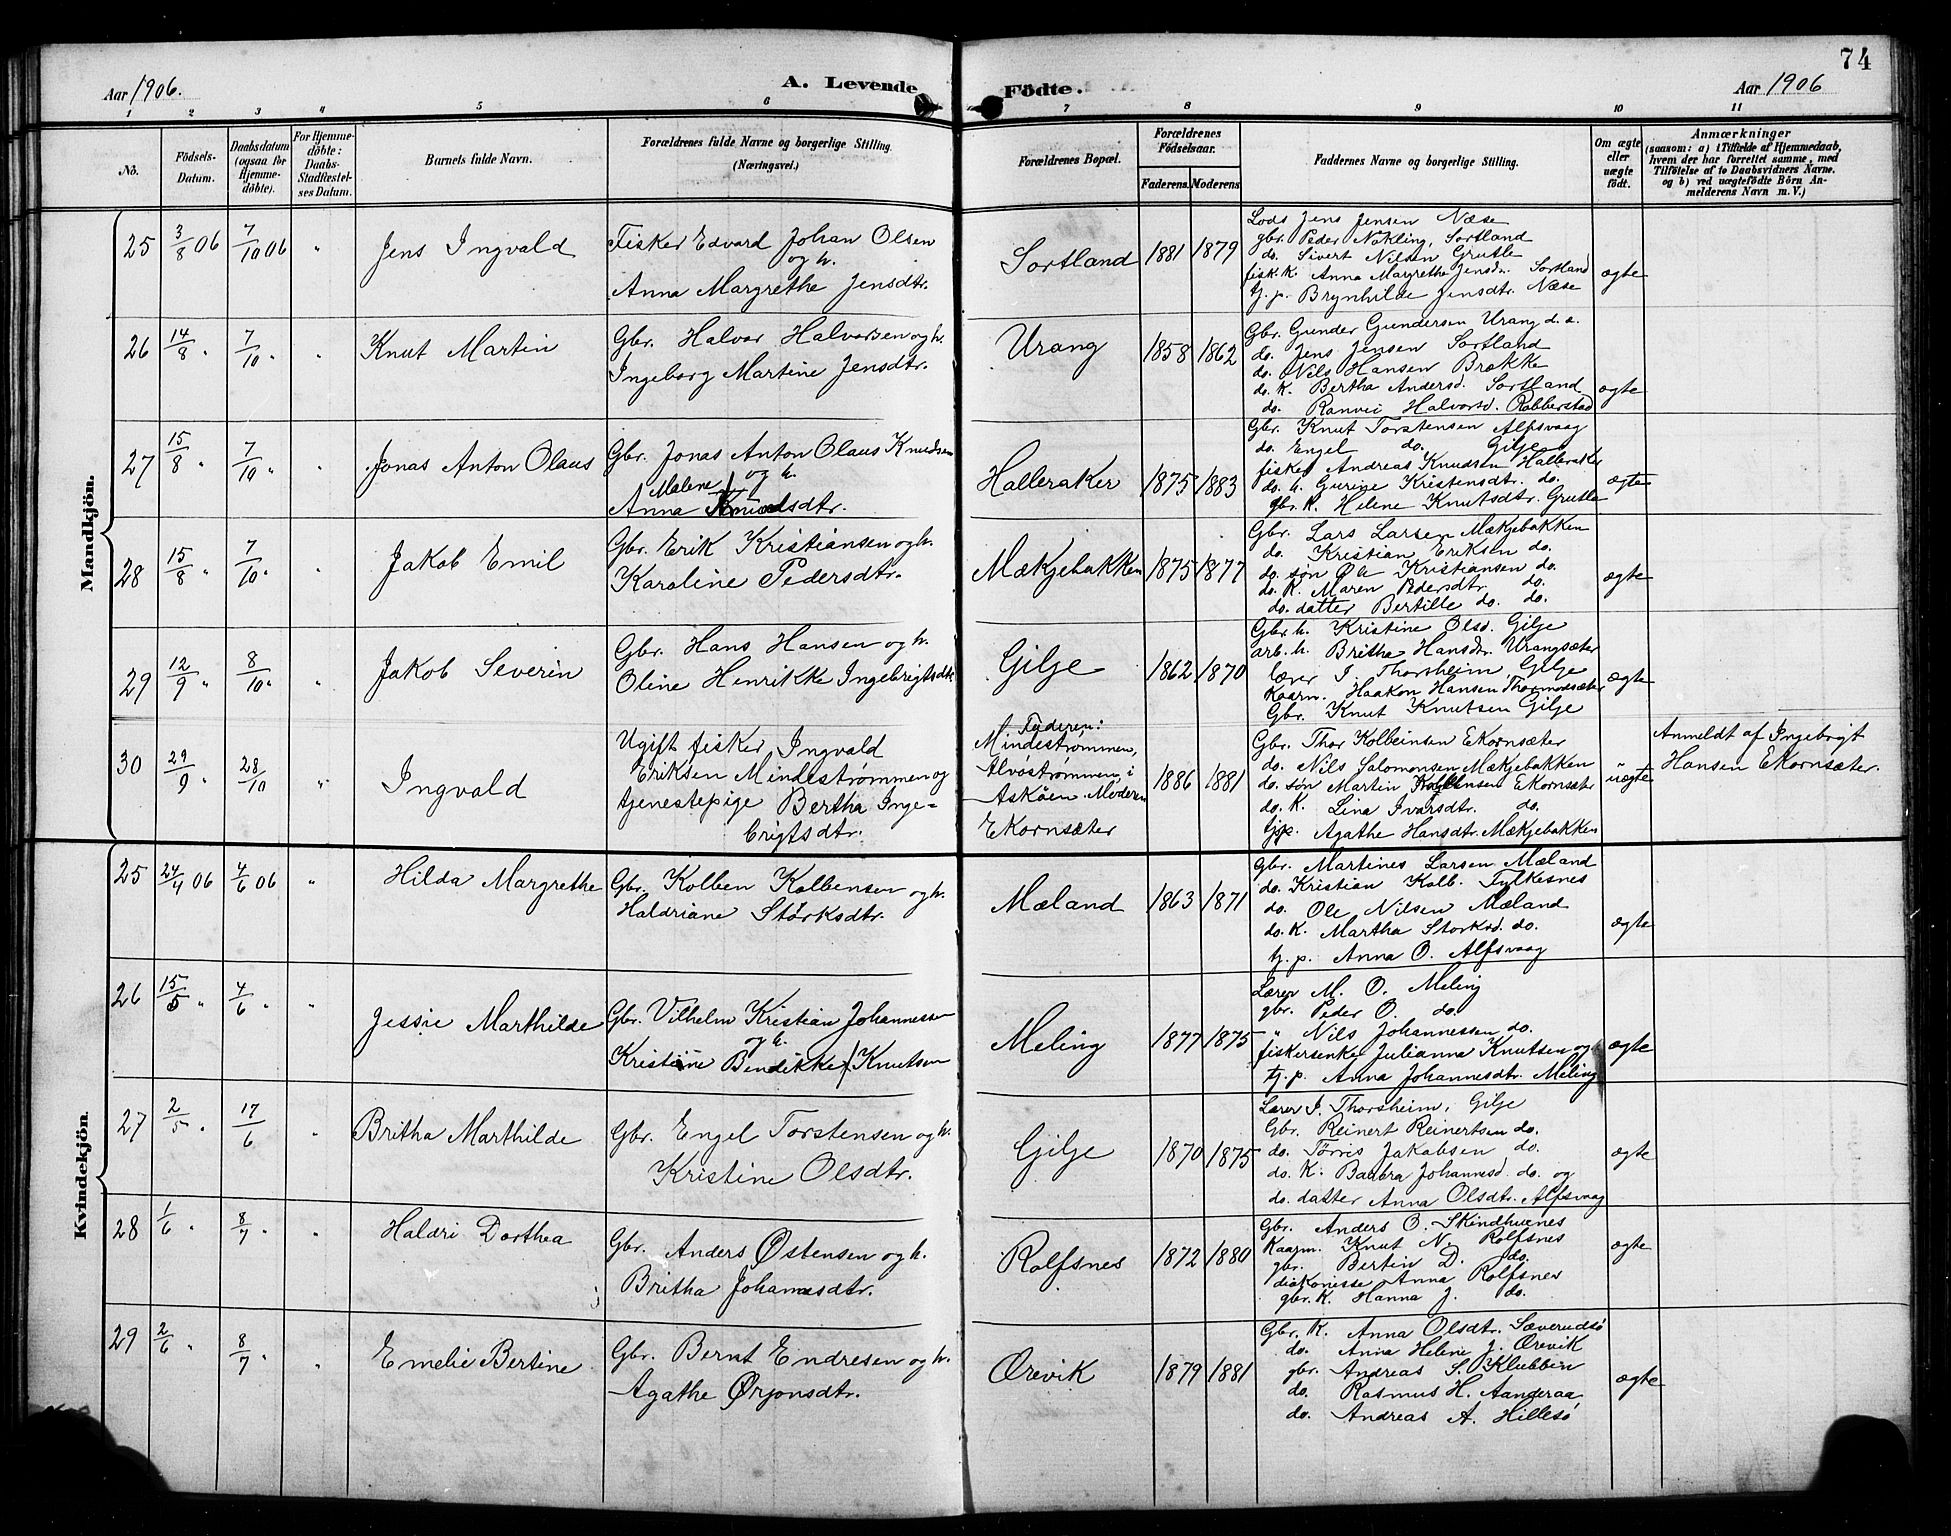 74
Aar 1906.
A. Levende Fødte.
Aar 1906
1 2 3 4 5 6 7 8 9 10 11
No.
Fødsels-
Datum.
Daabsdatum
(ogsaa for
Hjemme-
døbte).
For Hjemme-
døbte:
Daabs-
Stadfæstel-
ses Datum.
Barnets fulde Navn.
Forældrenes fulde Navne og borgerlige Stilling.
(Næringsvei.)
Forældrenes Bopæl.
Forældrenes
Fødselsaar.
Faderens. Moderens.
Faddernes Navne og borgerlige Stilling.
Om ægte
eller
uægte
født.
Anmærkninger
(saasom: a) i Tilfælde af Hjemmedaab,
hvem der har forrettet samme, med
Tilføielse af to Daabsvidners Navne.
og b) ved uægtefødte Børn An-
melderens Navn m. V.)
Mandkjön.
25 3/8 06 7/10 06 " Jens Ingvald
Fisker Edvard Johan Olsen
og h.
Anna Margrethe Jensdtr.
Sortland 1881 1879
Lods Jens Jensen Næse
gbr. Peder Nökling, Sortland
do. Sivert Nilsen Grutle
fisk. K. Anna Margrethe Jensdr. Sortland
tj. p. Brynhilde Jensdtr. Næse
ægte
26 14/8 " 7/10 " " Knut Martin
Gbr. Halvor Halvorsen og h.
Ingeborg Martine Jensdtr.
Urang 1858 1862
Gbr. Gunder Gundersen Urang d. e.
do. Jens Jensen Sortland
do. Nils Hansen Brække
do. K. Bertha Andersd. Sortland
do. Ranvei Halvorsd. Rabberstad
ægte
27 15/8 " 7/10 " " Jonas Anton Olaus
Gbr. Jonas Anton Olaus Knudsen
og h.
Malene
Anna Knudsdtr.
Halleraker 1875 1883
Gbr. Knut Torstensen Alfsvaag
do. Engel do. Gilje
fisker Andreas Knudsen Halleraker
do. h. Gurine Kristensdtr. do.
gbr. K. Helene Knutsdtr. Grutle
ægte
28 15/8 " 7/10 " " Jakob Emil
Gbr. Erik Kristiansen og h.
Karoline Pedersdtr.
Mækjebakken 1875 1877
Gbr. Lars Larsen Mækjebakken
do. Kristian Eriksen do.
do. søn Ole Kristiansen do.
do. K. Maren Pedersdtr. do.
do. datter Bertille do. do.
ægte
29 12/9 " 8/10 " " Jakob Severin
Gbr. Hans Hansen og h.
Oline Henrikke Ingebrigtsdtr
Gilje 1862 1870
Gbr. h. Kristine Olsd. Gilje
arb. h. Britha Hansdr. Urangsæter
lærer I. Thorsheim, Gilje
Kaarm. Haakon Hansen Thormodsæter
Gbr. Knut Knutsen Gilje
ægte
30 29/9 " 28/10 " Ingvald
Ugift fisker Ingvald
Eriksen Mindestrømmen og
tjenestepige Bertha Inge-
brigtsdtr.
Faderen:
Mindestrømmen,
Alvöströmmen i
Asköen. Moderen
Ekornsæter
1886 1881
Gbr. Thor Kolbeinsen Ekornsæter
do. Nils Salomonsen Mækjebakken
do. søn Martin Kolbensen Ekornsæter
do. K. Lina Ivarsdtr. do.
tj.p. Agathe Hansdtr. Mækjebakken
uægte
Anmeldt af Ingebrigt
Hansen Ekornsæter.
Kvindekjön.
25 24/4 06 4/6 06 " Hilda Margrethe
Gbr. Kolben Kolbensen og h.
Haldriane Størksdtr.
Mæland 1863 1871
Gbr. Martines Larsen Mæland
do. Kristian Kolb. Fylkesnes
do. Ole Nilsen Mæland
do. K. Martha Storksd. do.
tj. p. Anna O. Alfsvaag
ægte
26 15/5 " 4/6 " " Jessie Marthilde
Gbr. Vilhelm Kristian Johannessen
og h.
Kristine Bendikke Knutsen
Meling 1877 1875
Lærer M. O. Meling
gbr. Peder O. do.
" Nils Johannessen do.
fiskerenke Julianna Knutsen og
tj. p. Anna Johannesdtr. Meling
ægte
27 2/5 " 17/6 " Britha Marthilde
Gbr. Engel Torstensen og h.
Kristine Olsdtr.
Gilje 1870 1875
Lærer I. Thorsheim, Gilje
Gbr. Reinert Reinertsen do.
do. Tørris Jakobsen do.
do. K. Barbra Johannesd. do. og
do. datter Anna Olsdtr. Alfsvaag
ægte
28 1/6 " 8/7 " " Haldri Dorthea
Gbr. Anders Østensen og h.
Britha Johannesdtr.
Rolfsnes 1872 1880
Gbr. Anders O. Skindhuenes
Kaarm. Knut N. Rolfsnes
gbr. Bertin D. do.
diakonisse Anna Rolfsnes
gbr. K. Hanna J. do.
ægte
29 2/6 " 8/7 " " Emelie Bertine
Gbr. Bernt Endresen og h.
Agathe Ørjansdtr.
Ørevik 1879 1881
Gbr. K. Anna Olsdtr. Sæverudsö
do. Anna Helene J. Ørevik
gbr. Andreas S. Klubben
do. Rasmus H. Aanderaa
do. Andreas A. Hillesö
ægte